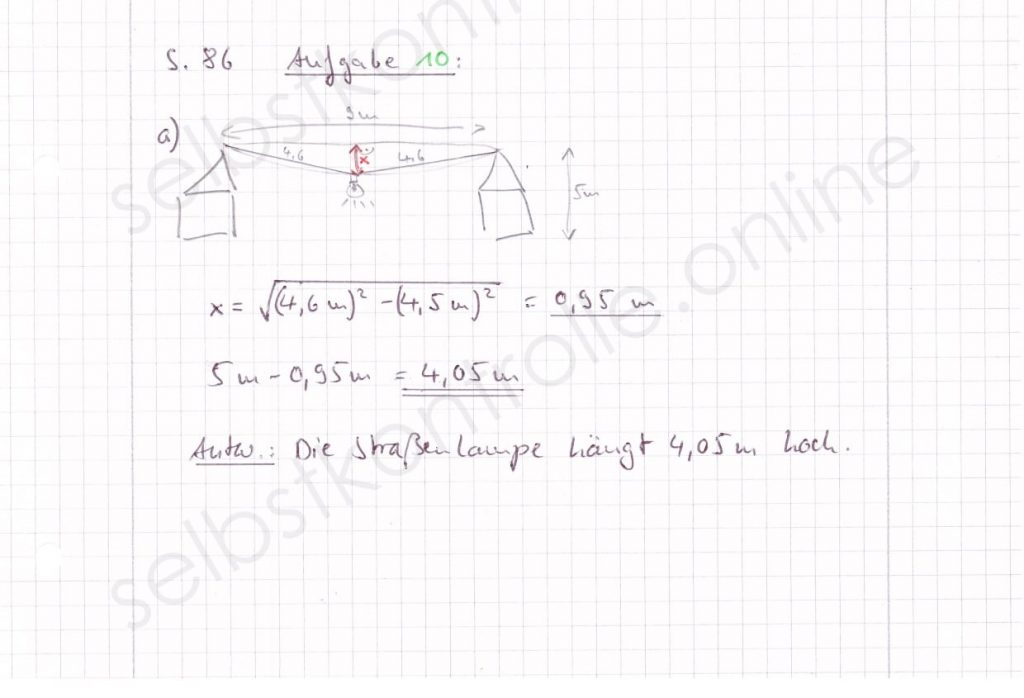 S. 86 Aufgabe 10:
a)
9m
4,6 x 4,6
5m
x = √(4,6 m)² - (4,5 m)² = 0,95 m
5m - 0,95m = 4,05m
Antw.: Die Straßenlampe hängt 4,05m hoch.
selbstkontrolle.online
selbstkontrolle.online